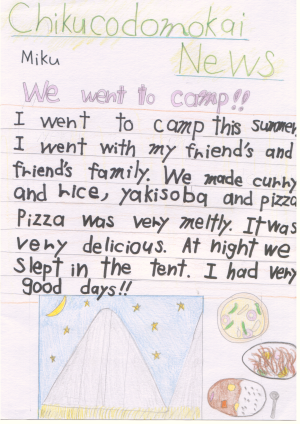 Chikucodomokai
News
Miku
We went to camp!!
I went to camp this summer.
I went with my friend's and
friend's family. We made curry
and rice, yakisoba and pizza
Pizza was very meltly. It was
very delicious. At night we
slept in the tent. I had very
good days!!